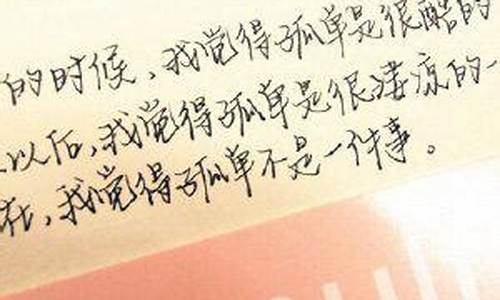 的时候、我觉得孤单是很酷的
以后,我觉得孤单是很凄凉的一
在,我觉得孤单不是一件事。